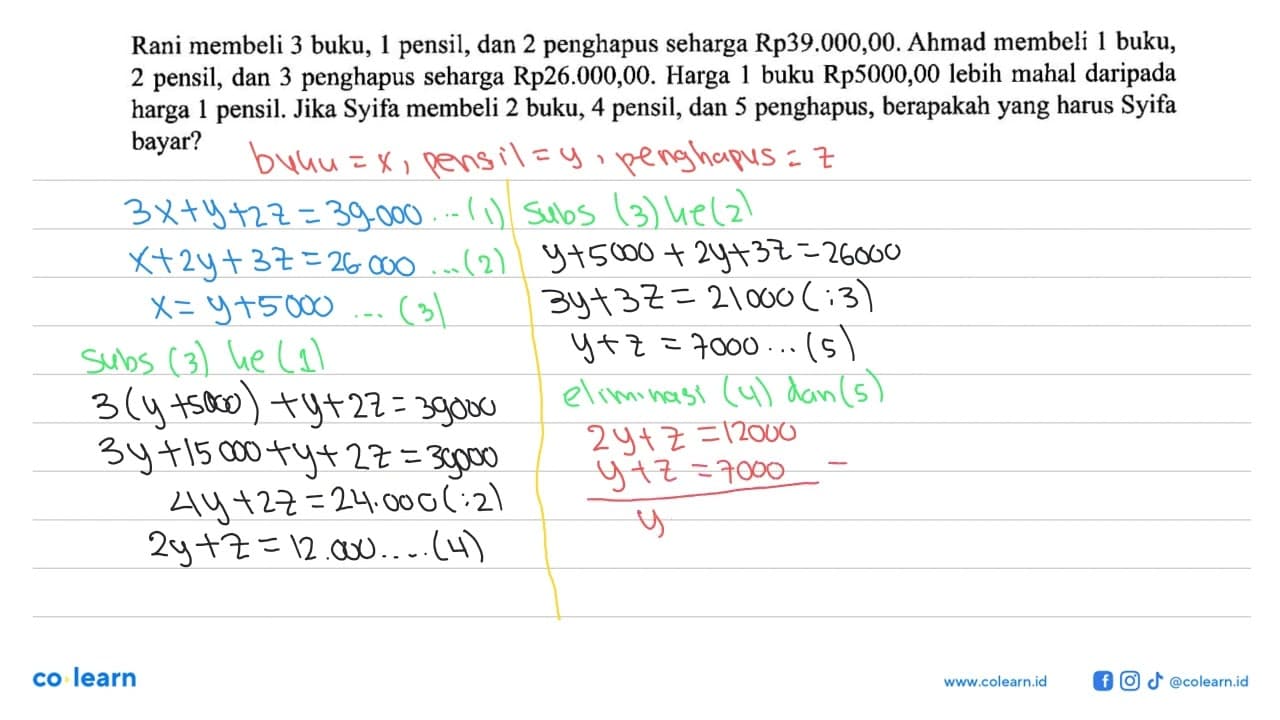 Rani membeli 3 buku, 1 pensil, dan 2 penghapus seharga Rp39.000,00. Ahmad membeli 1 buku,
2 pensil, dan 3 penghapus seharga Rp26.000,00. Harga 1 buku Rp5000,00 lebih mahal daripada
harga 1 pensil. Jika Syifa membeli 2 buku, 4 pensil, dan 5 penghapus, berapakah yang harus Syifa
bayar?
buku = x, pensil = y, penghapus = z
3x+y+2z = 39.000 ... (1)
x+2y+3z = 26.000 ... (2)
x = y+5000 ... (3)
Subs (3) ke (1)
3(y+5000)+y+2z = 39000
3y+15000+y+2z = 39000
4y+2z = 24.000 (:2)
2y+z = 12.000 .... (4)
Subs (3) ke (2)
y+5000+2y+3z = 26000
3y+3z = 21000 (:3)
y+z = 7000 ... (5)
eliminasi (4) dan (5)
2y+z = 12000
y+z = 7000 -
y
co learn
www.colearn.id
@colearn.id